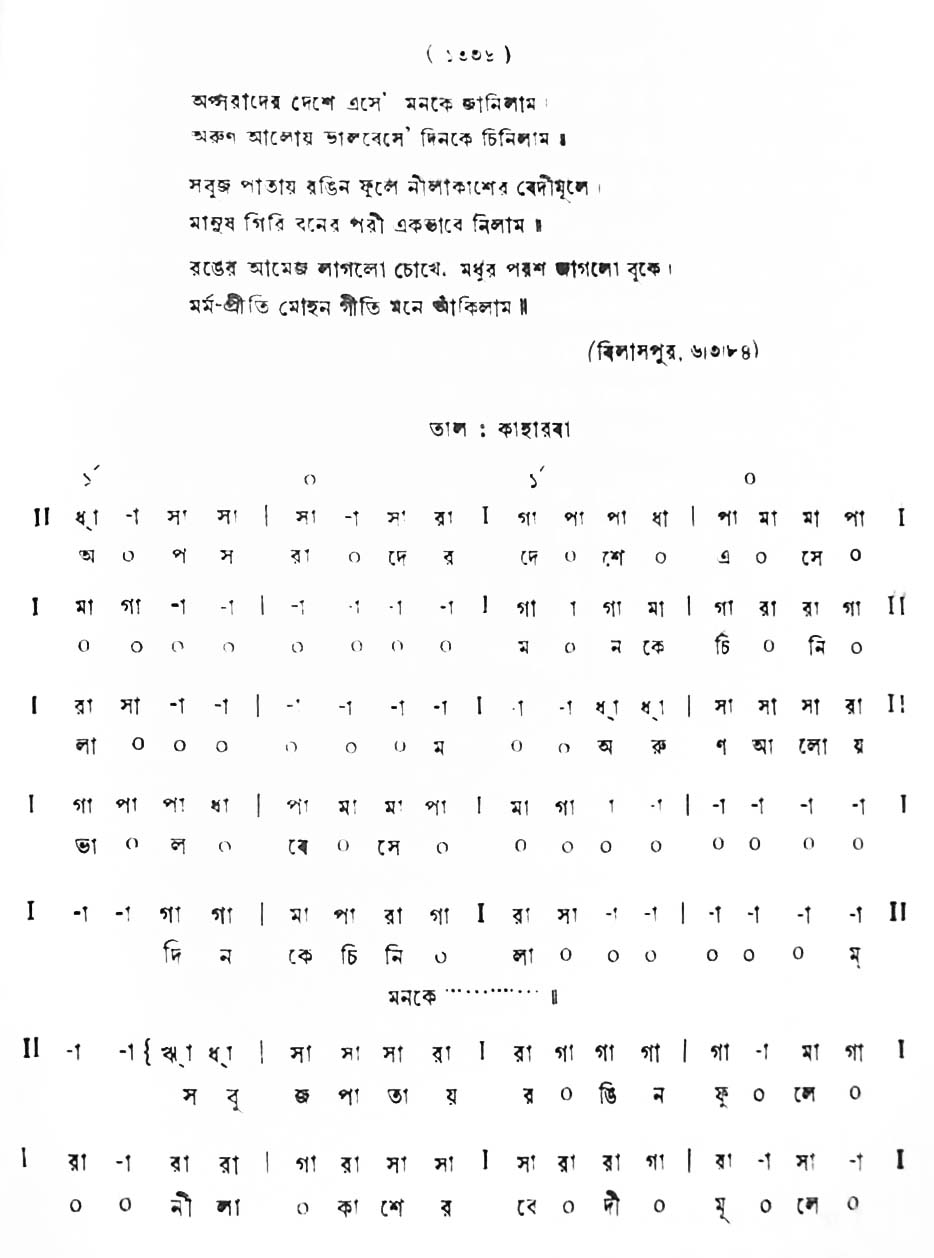 ( ১৩৩৬ )
অপ্সরাদের দেশে এসে' মনকে জানিলাম।
অরুণ আলোয় ভালবেসে' দিনকে চিনিলাম॥
সবুজ পাতায় রঙিন ফুলে নীলাকাশের বেদীমূলে।
মানুষ গিরি বনের পরী একভাবে নিলাম॥
রঙের আমেজ লাগলো চোখে, মধুর পরশ জাগলো বুকে।
মর্ম-প্রীতি মোহন গীতি মনে আঁকিলাম॥
(বিলাসপুর, ৬।৩।৮৪)
তাল : কাহারবা
১´ ০ ১´ ০
II ধ্া -া সা সা | সা -া সা রা I গা পা পা ধা | পা মা মা পা I
অ ০ প স রা ০ দে র দে ০ শে ০ এ ০ সে ০
I মা গা -া -া | -া -া -া -া I গা া গা মা | গা রা রা গা II
০ ০ ০ ০ ০ ০ ০ ০ ম ০ ন কে চি ০ নি ০
I রা সা -া -া | -া -া -া -া I -া -া ধ্া ধ্া | সা সা সা রা I!
লা ০ ০ ০ ০ ০ ০ ম ০ ০ অ রু ণ আ লো য়
I গা পা পা ধা | পা মা মা পা I মা গা া -া | -া -া -া -া I
ভা ০ ল ০ বে ০ সে ০ ০ ০ ০ ০ ০ ০ ০ ০
I -া -া গা গা | মা পা রা গা I রা সা -া -া | -া -া -া -া II
দি ন কে চি নি ০ লা ০ ০ ০ ০ ০ ০ ম্
মনকে ............ ॥
II -া -া { ঋ্া ধ্া | সা সা সা রা I রা গা গা গা | গা -া মা গা I
স বু জ পা তা য় র ০ ঙি ন ফু ০ লে ০
I রা -া রা রা | গা রা সা সা I সা রা রা গা | রা -া সা -া I
০ ০ নী লা ০ কা শে র বে ০ দী ০ মূ ০ লে ০